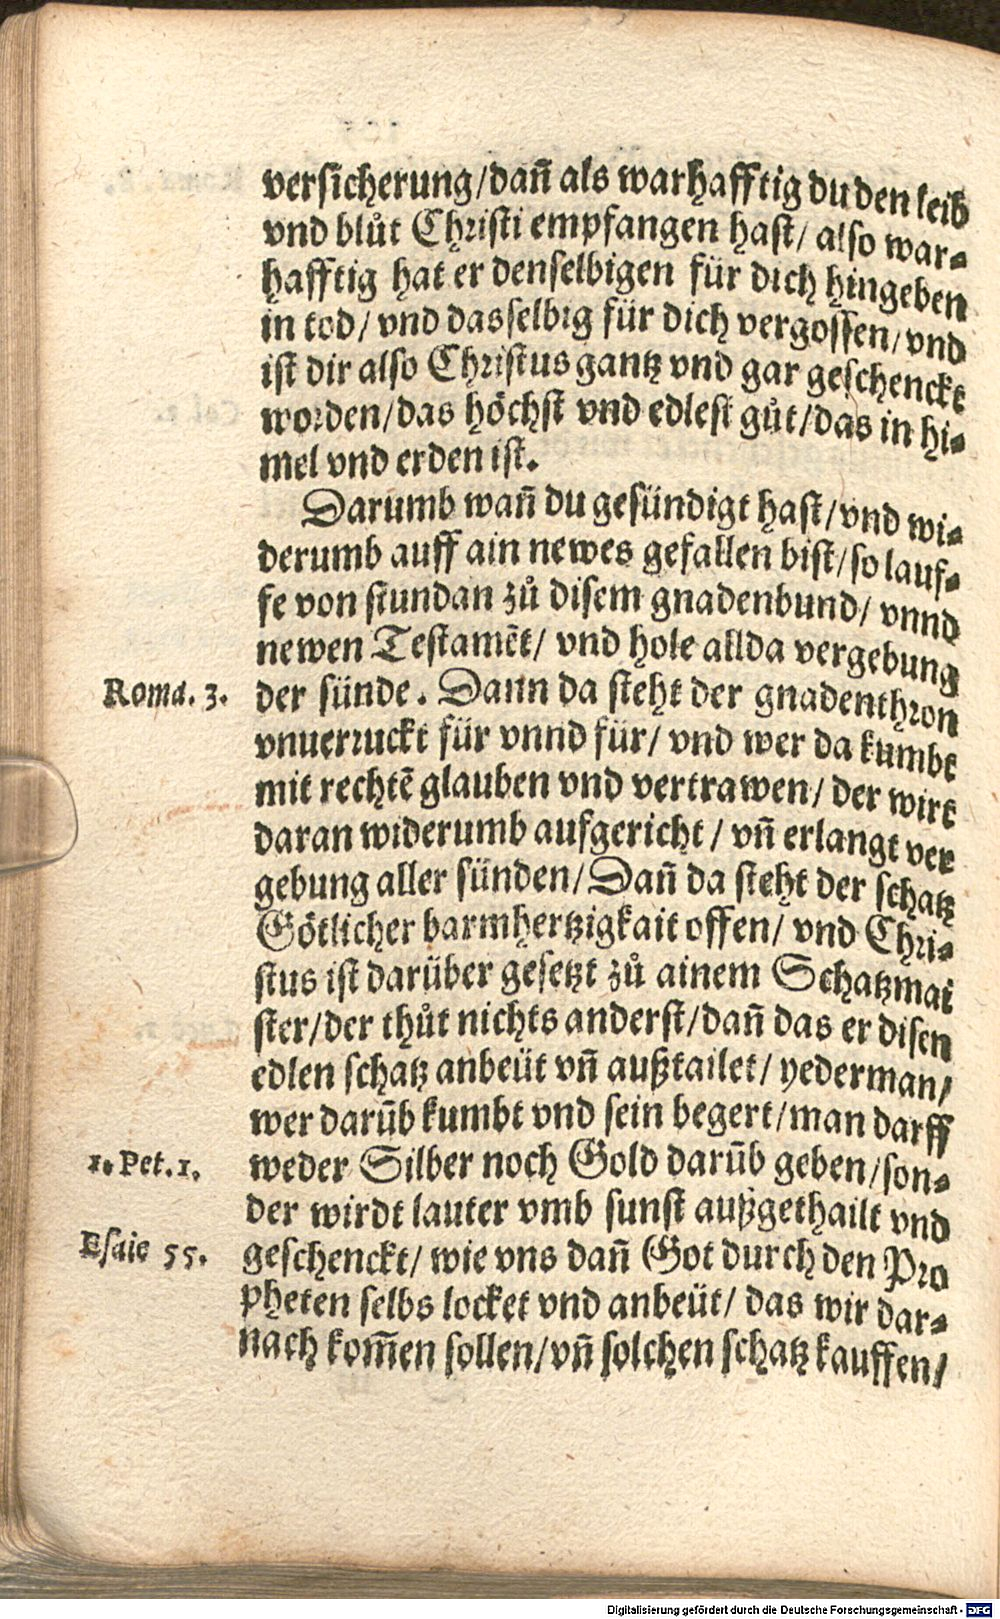 versicherung/dañ als warhafftig du den leib
vnd blůt Christi empfangen hast/ also war-
hafftig hat er denselbigen für dich hingeben
in tod/ vnd dasselbig für dich vergossen/ vnd
ist dir also Christus gantz vnd gar geschenckt
worden/das höchst vnd edlest gůt/das in hi-
mel vnd erden ist.
Darumb wañ du gesündigt hast/vnd wi-
derumb auff ain newes gefallen bist/so lauf-
fe von stundan zů disem gnadenbund/ vnnd
newen Testamēt/ vnd hole allda vergebung
Roma. 3. der sünde. Dann da steht der gnadenthron
vnuerruckt für vnnd für/ vnd wer da kumbt
mit rechtē glauben vnd vertrawen/ der wirt
daran widerumb aufgericht/ vñ erlangt ver
gebung aller sünden/Dañ da steht der schatz
Götlicher barmhertzigkait offen/ vnd Chri-
stus ist darüber gesetzt zů ainem Schatzmai
ster/der thůt nichts anderst/dañ das er disen
edlen schatz anbeüt vñ außtailet/ yederman/
wer darūb kumbt vnd sein begert/man darff
1. Pet. 1. weder Silber noch Gold darūb geben/son-
der wirdt lauter vmb sunst außgethailt vnd
Esaie 55. geschenckt/ wie vns dañ Got durch den Pro
pheten selbs locket vnd anbeüt/ das wir dar-
nach kom̄en sollen/vñ solchen schatz kauffen/
Digitalisierung gefördert durch die Deutsche Forschungsgemeinschaft - DFG